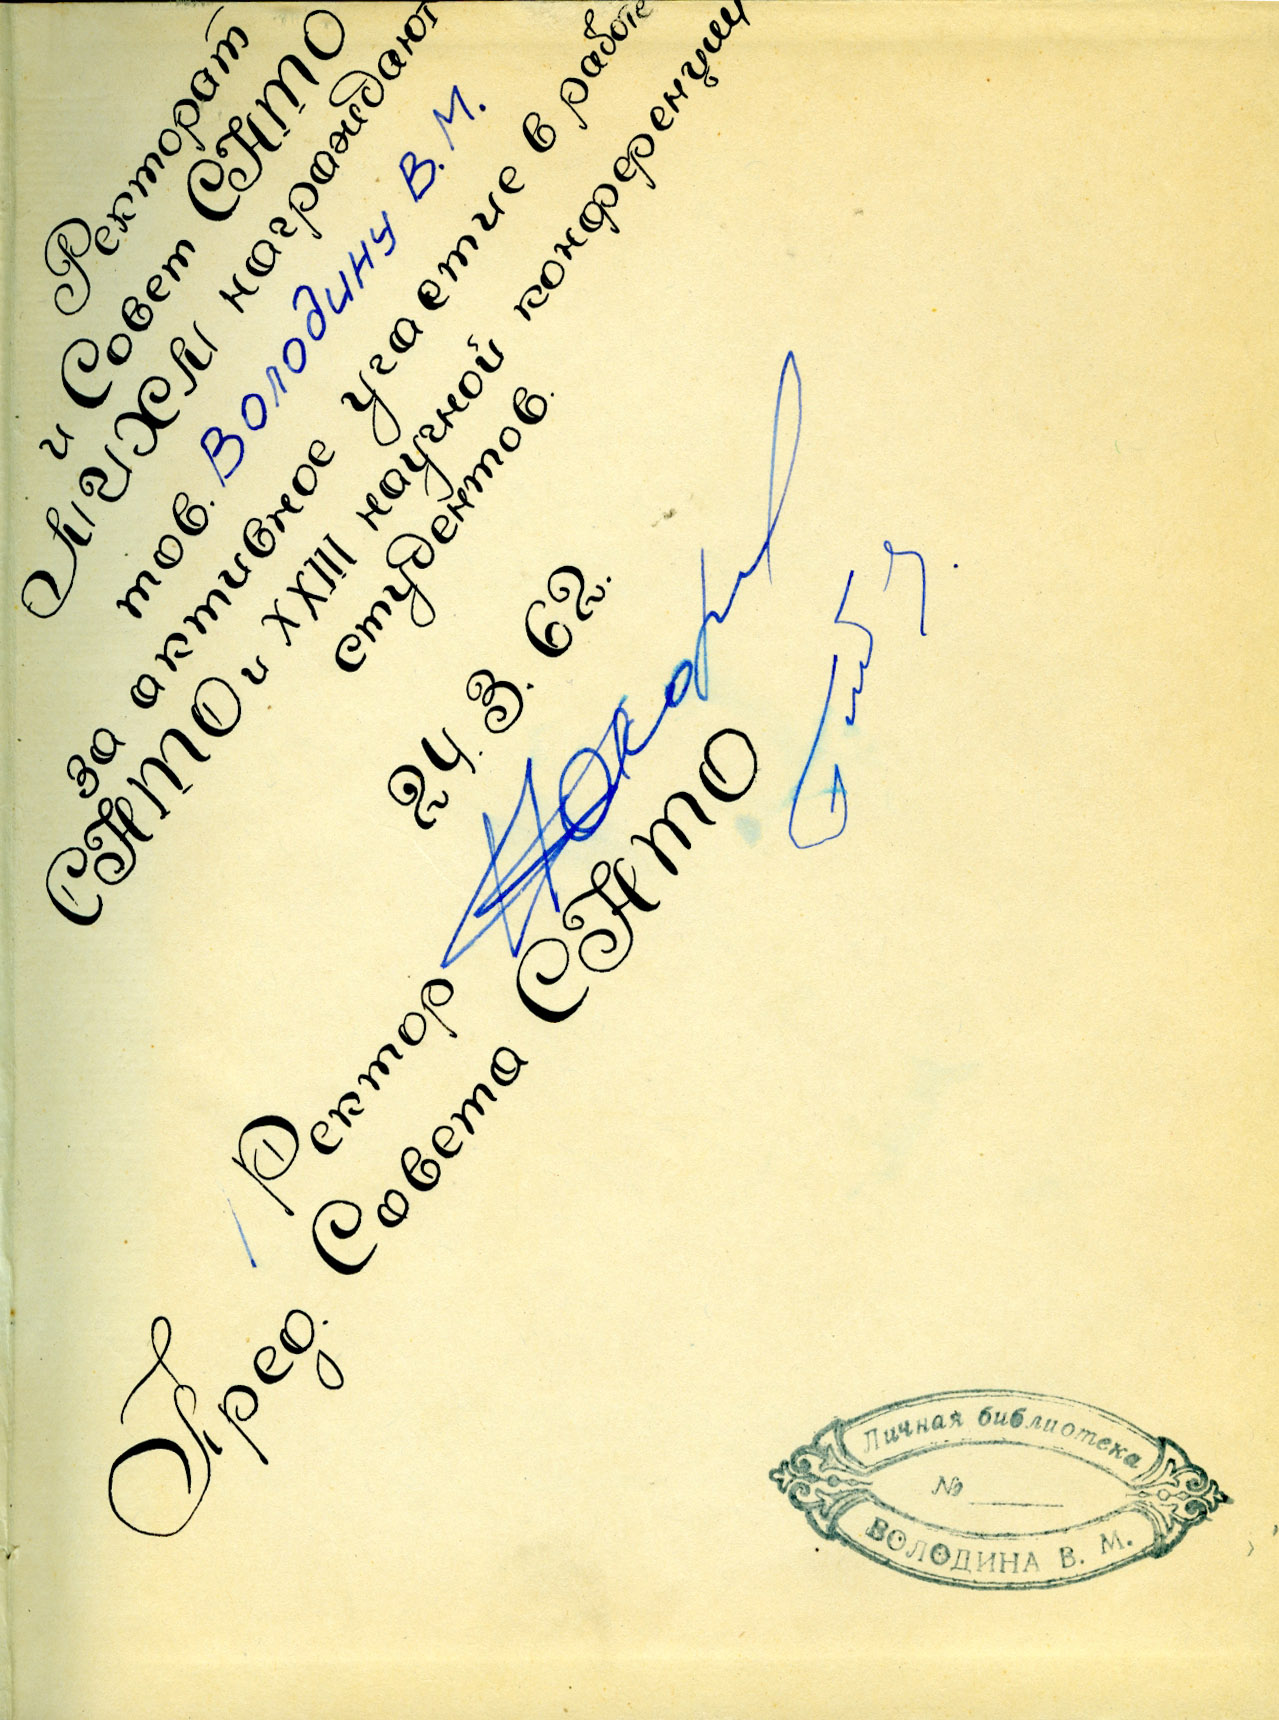 Ректорат
и Совет СНТО
МИХМ награждают
тов. Володину В. М.
за активное участие в работе
СНТО и XXIII научной конференции
студентов.
24. 3. 62.
Ректор
Пред. Совета СНТО
Личная библиотека
№
ВОЛОДИНА В. М.